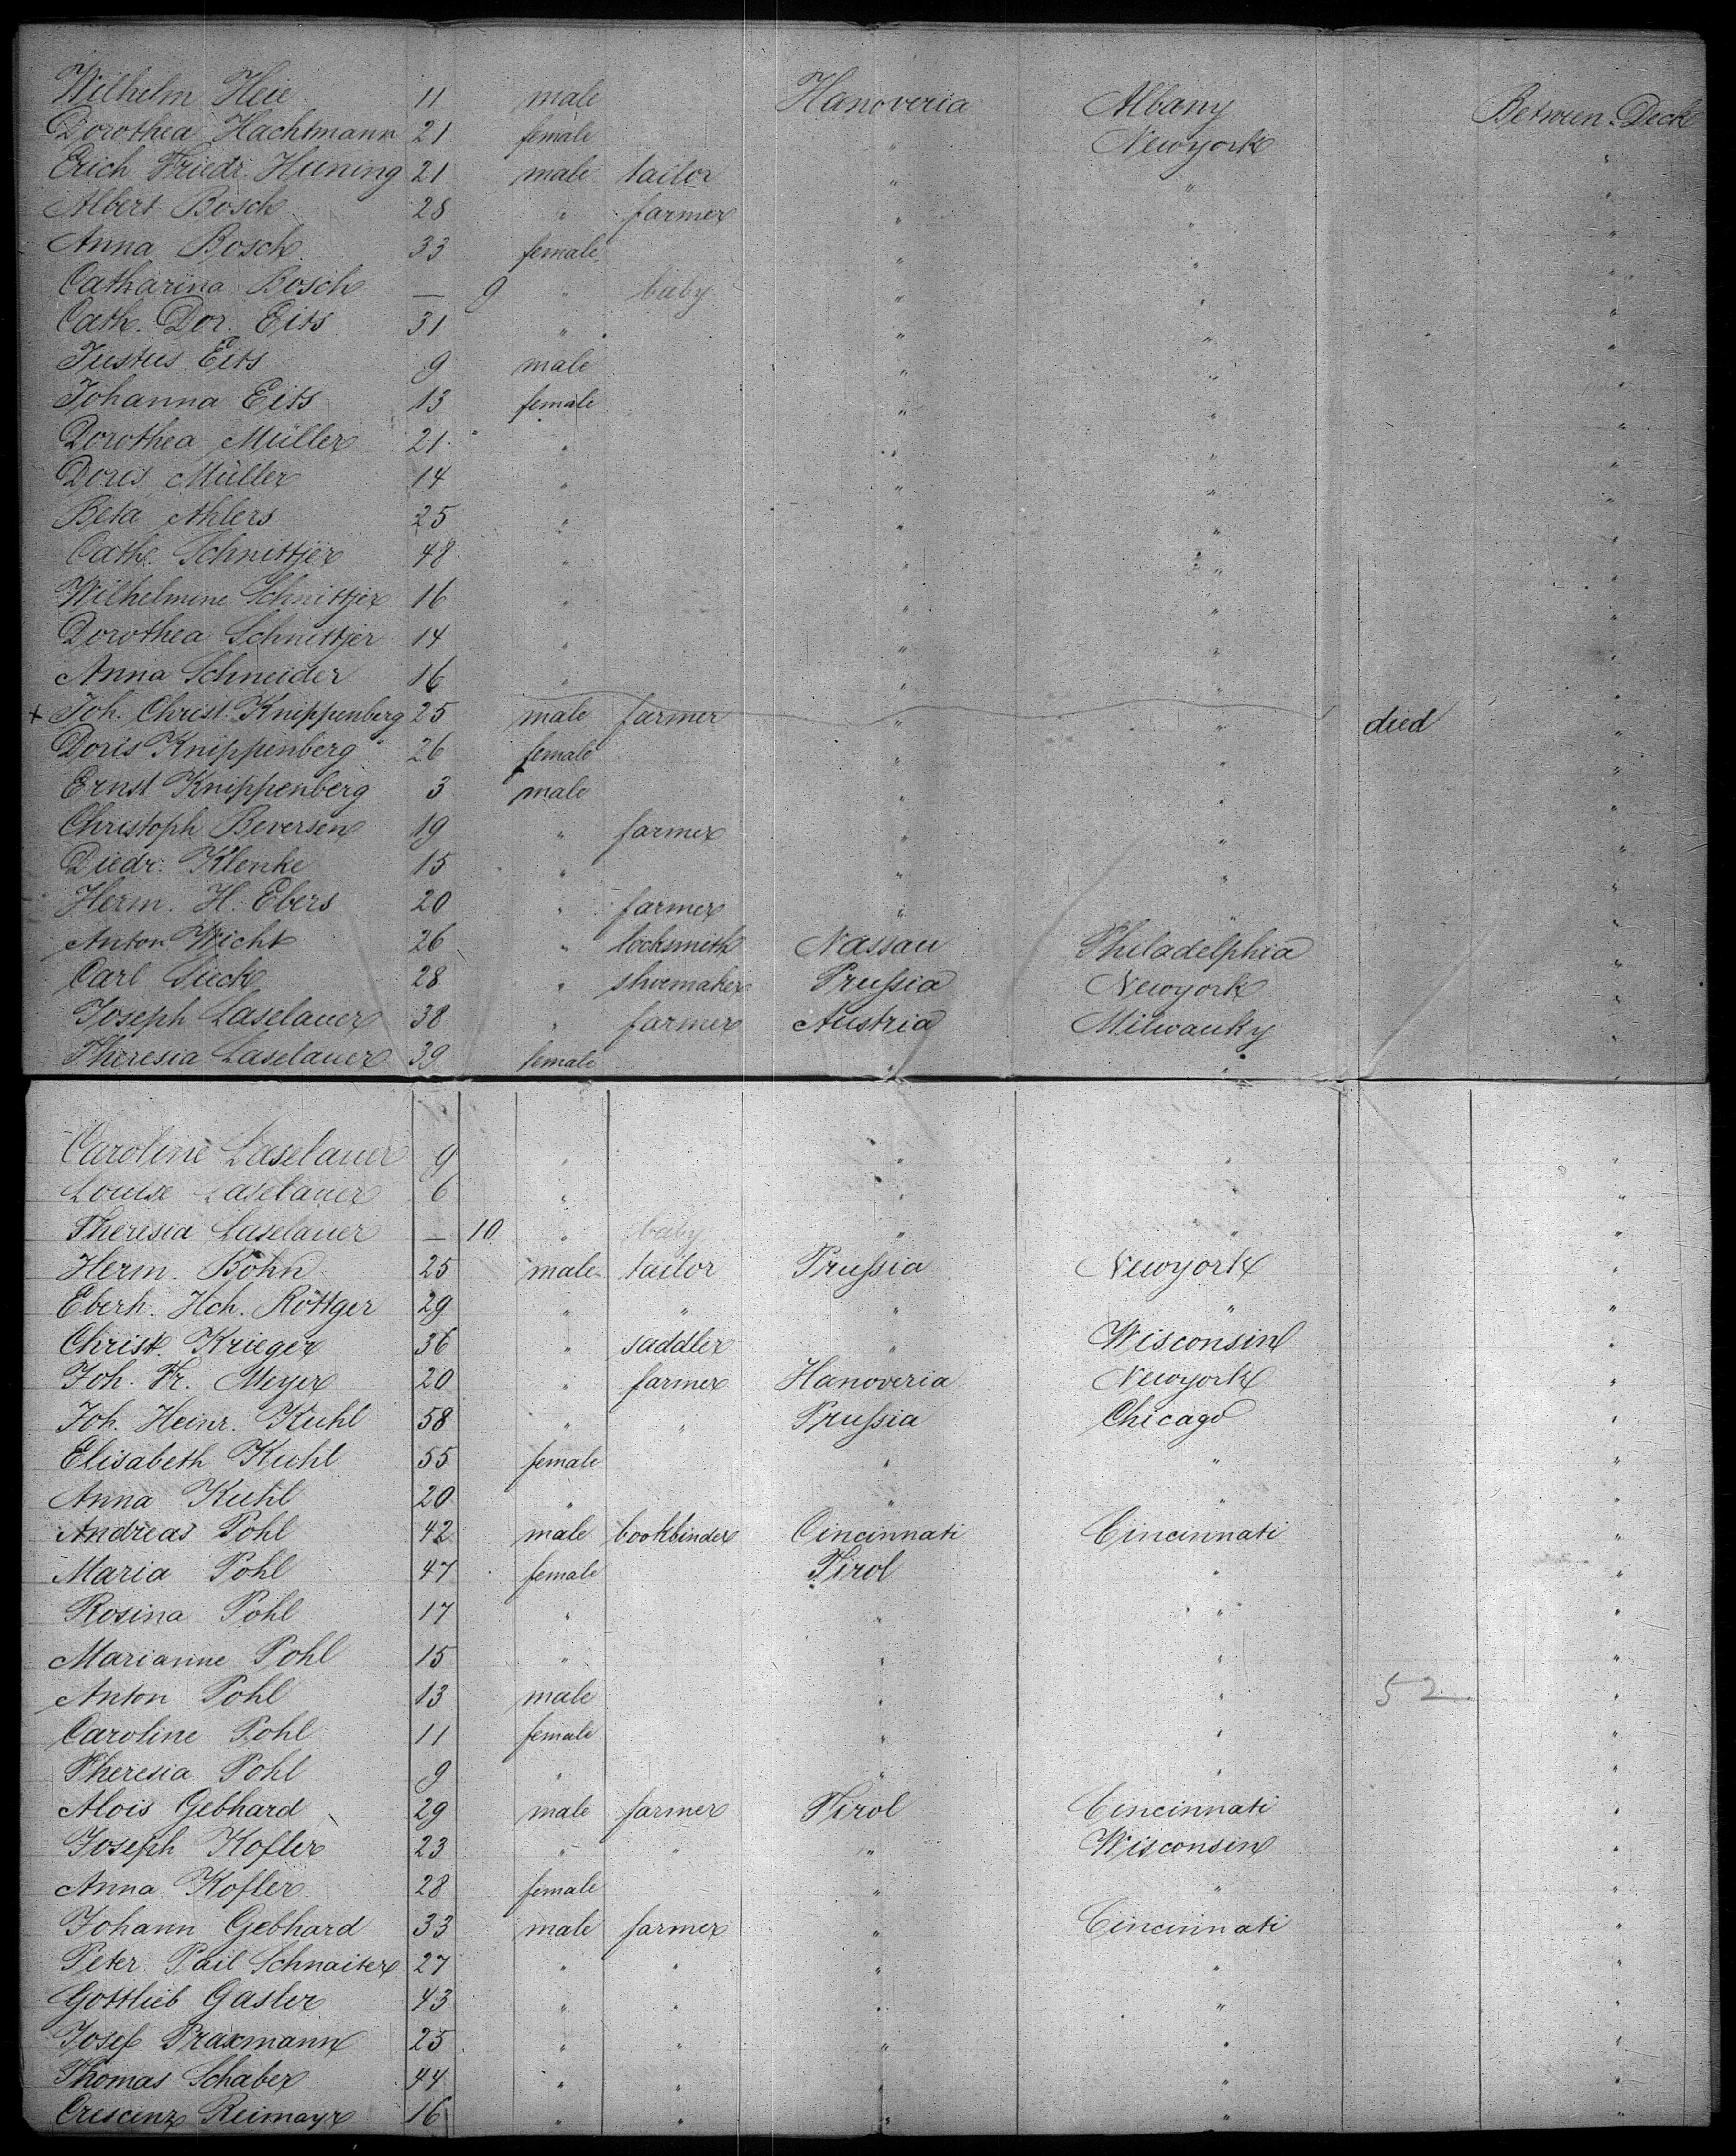 Wilhelm Heie 11 male Hanoveria Albany Between Deck
Dorothea Hachtmann 21 female " Newyork "
Erich Friedr. Huning 21 male tailor " " "
Albert Bosch 28 " farmer " " "
Anna Bosch 33 female " " "
Catharina Bosch — 9 " baby " " "
Cath. Dor. Eits 31 " " " "
Justus Eits 9 male " " "
Johanna Eits 13 female " " "
Dorothea Müller 21 " " " "
Doris Müller 14 " " " "
Beta Ahlers 25 " " " "
Cath. Schnittjer 48 " " " "
Wilhelmine Schnittjer 16 " " " "
Dorothea Schnittjer 14 " " " "
Anna Schneider 16 " " " "
+ Joh. Christ. Knippenberg 25 male farmer " " died "
Doris Knippenberg 26 female " " "
Ernst Knippenberg 3 male " " "
Christoph Beversen 19 " farmer " " "
Diedr. Klenke 15 " " " "
Herm. H. Ebers 20 " farmer " " "
Anton Wicht 26 " locksmith Nassau Philadelphia "
Carl Sieck 28 " shoemaker Prussia Newyork "
Joseph Laselauer 38 " farmer Austria Milwauky "
Theresia Laselauer 39 female " " "
Caroline Laselauer 9 " " " "
Louise Laselauer 6 " " " "
Theresia Laselauer — 10 " baby " " "
Herm. Böhn 25 male tailor Prussia Newyork "
Eberh. Hch. Röttger 29 " " " " "
Christ. Krieger 36 " saddler " Wisconsin "
Joh. Fr. Meyer 20 " farmer Hanoveria Newyork "
Joh. Heinr. Kuhl 58 " " Prussia Chicago "
Elisabeth Kuhl 55 female " " "
Anna Kuhl 20 " " " "
Andreas Pohl 42 male bookbinder Cincinnati Cincinnati "
Maria Pohl 47 female Tirol " "
Rosina Pohl 17 " " " "
Marianne Pohl 15 " " " "
Anton Pohl 13 male " " 52 "
Caroline Pohl 11 female " " "
Theresia Pohl 9 " " " "
Alois Gebhard 29 male farmer Tirol Cincinnati "
Joseph Kofler 23 " " " Wisconsin "
Anna Kofler 28 female " " "
Johann Gebhard 33 male farmer " Cincinnati "
Peter Pail Schnaiter 27 " " " " "
Gottlieb Gasler 43 " " " " "
Josef Praxmann 25 " " " " "
Thomas Schaber 44 " " " " "
Crescenz Reimayr 16 " " " " "